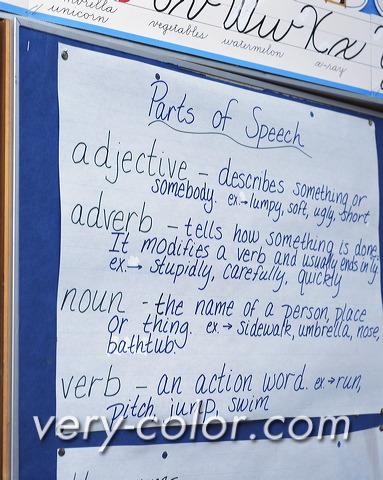 umbrella
unicorn
vegetables
watermelon
Ww Xx
x-ray
Parts of Speech
adjective – describes something or
somebody. ex.→ lumpy, soft, ugly, short
adverb – tells how something is done.
It modifies a verb and usually ends in ly
ex.→ stupidly, carefully, quickly
noun - the name of a person, place
or thing. ex.→ sidewalk, umbrella, nose,
bathtub.
verb – an action word. ex.→ run,
pitch, jump, swim
very-color.com